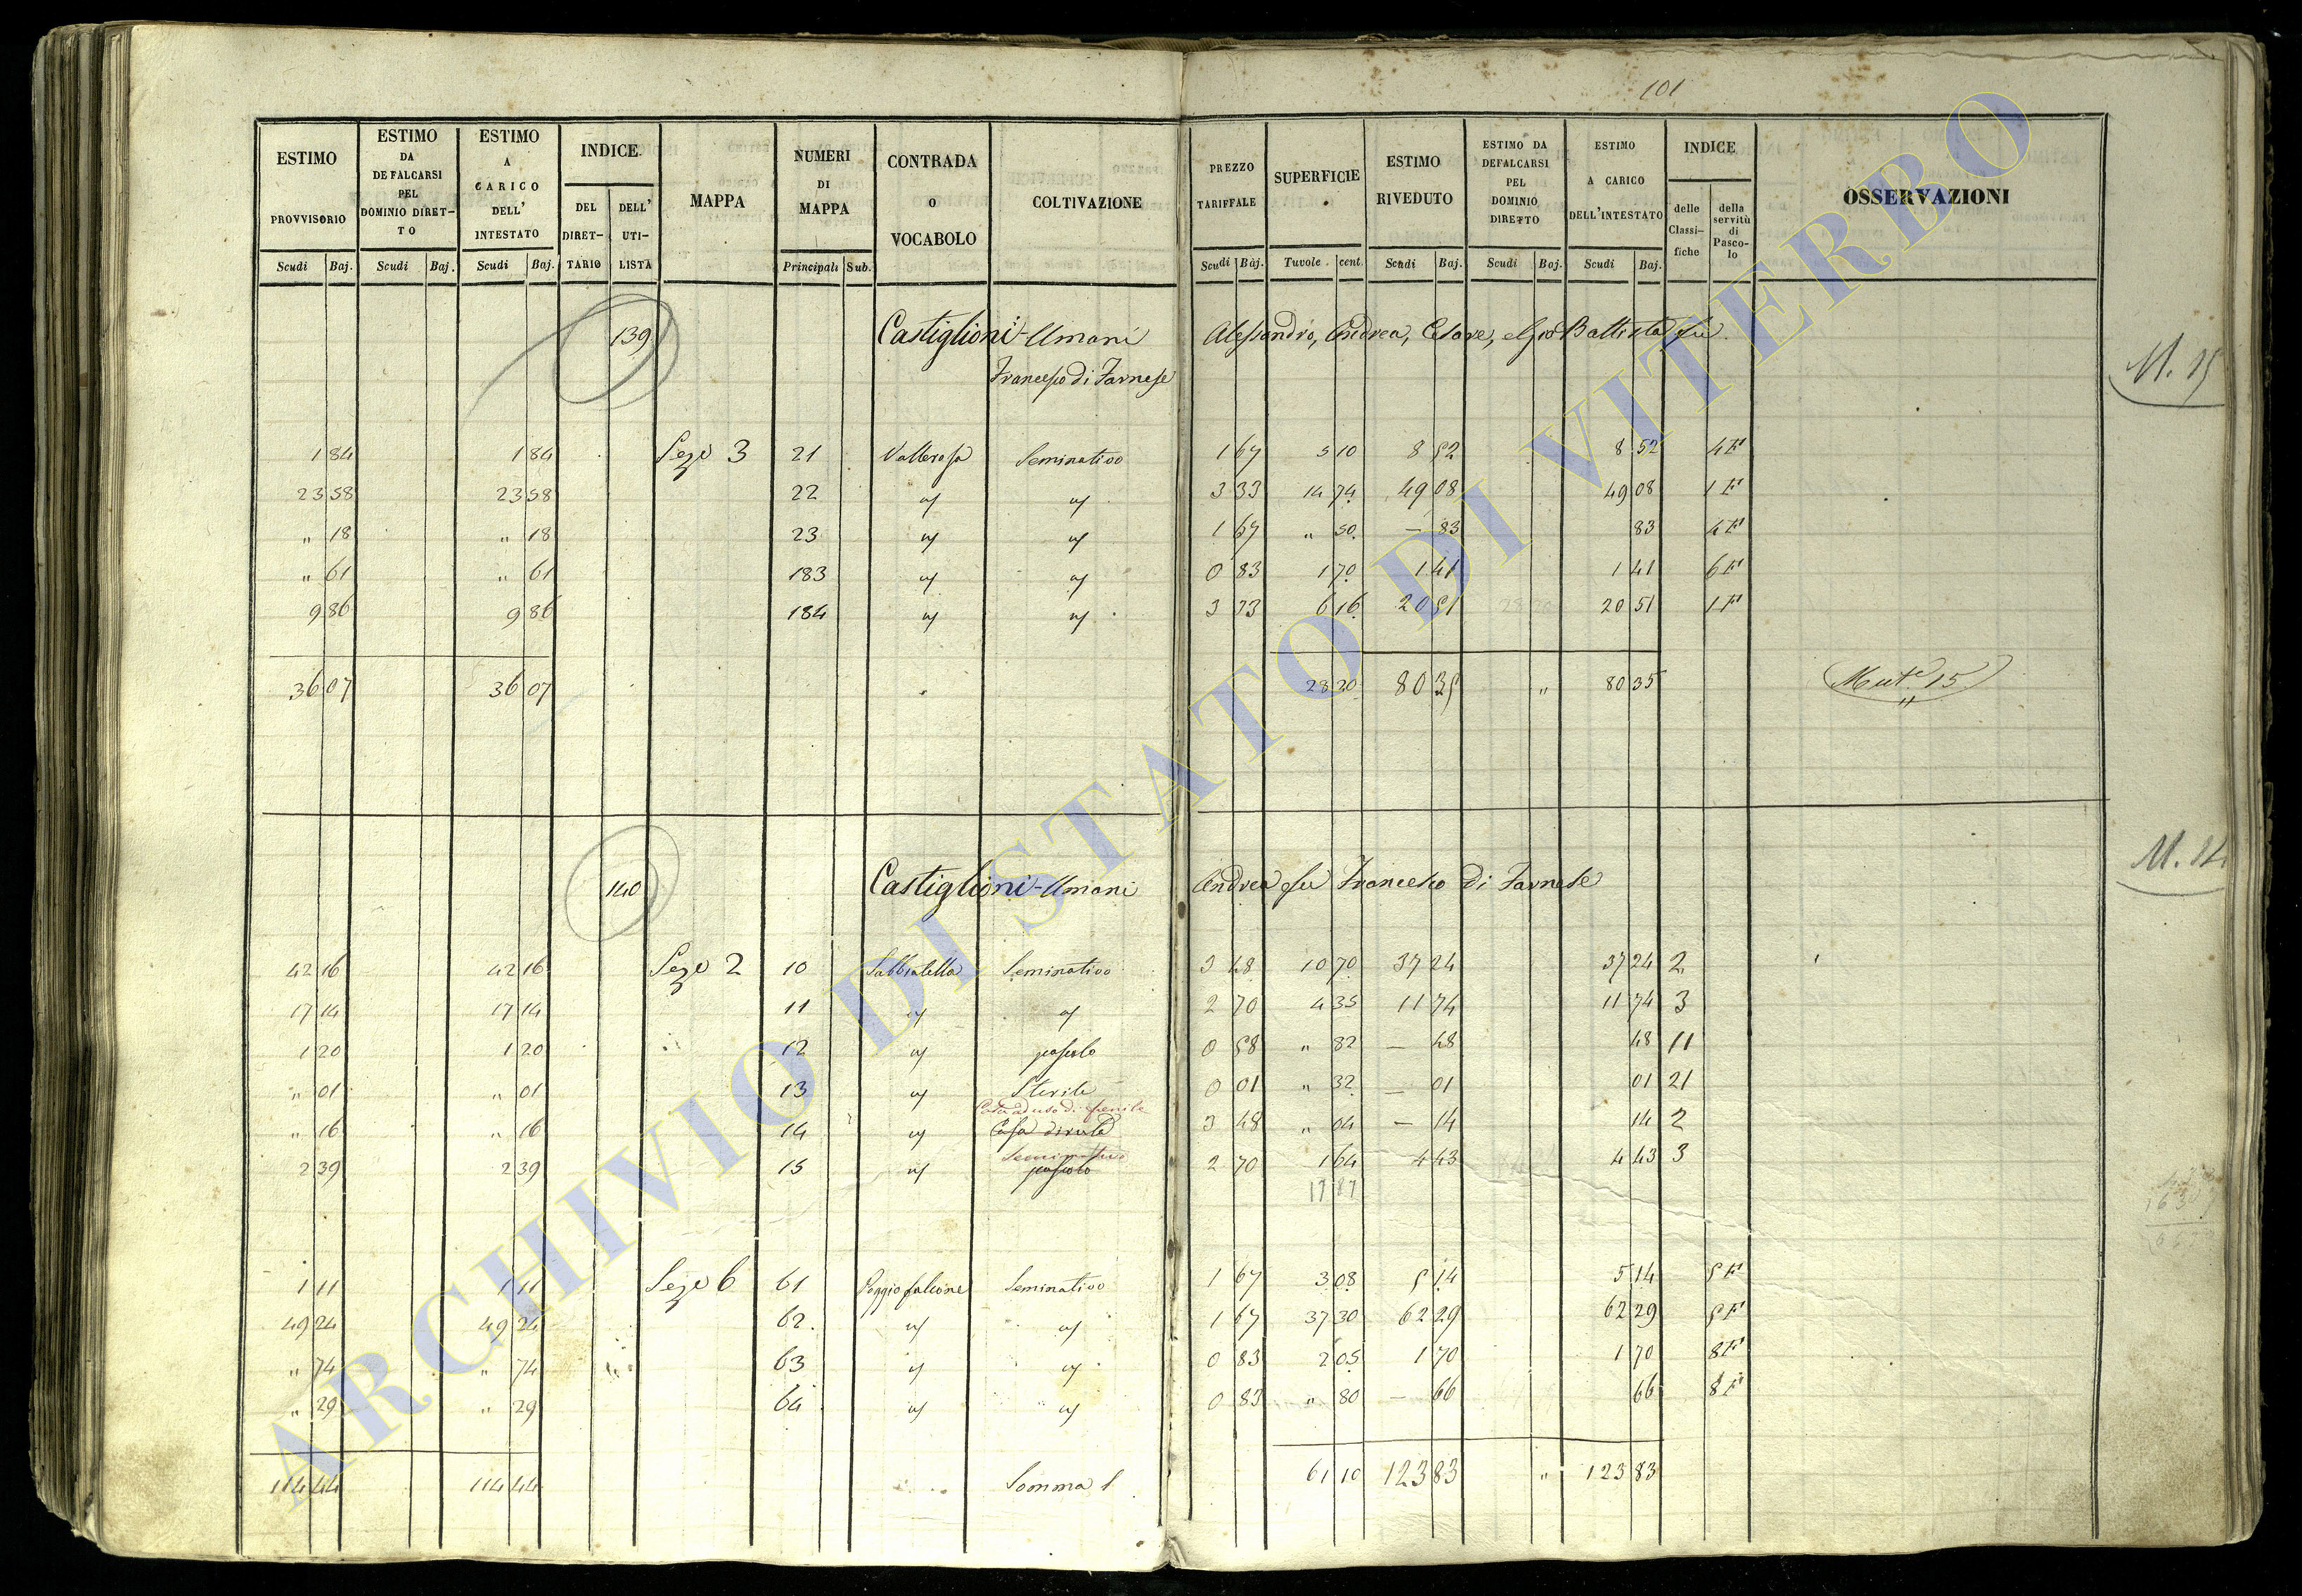 101
ESTIMO PROVVISORIO | ESTIMO DA DEFALCARSI PEL DOMINIO DIRET-TO | ESTIMO A CARICO DELL' INTESTATO | INDICE DEL DIRET-TARIO | DELL' UTI-LISTA | MAPPA | NUMERI DI MAPPA | CONTRADA O VOCABOLO | COLTIVAZIONE | PREZZO TARIFFALE | SUPERFICIE | ESTIMO RIVEDUTO | ESTIMO DA DEFALCARSI PEL DOMINIO DIRETTO | ESTIMO A CARICO DELL'INTESTATO | INDICE delle Classi-fiche | della servitù di Pasco-lo | OSSERVAZIONI
Scudi | Baj. | Scudi | Baj. | Scudi | Baj. | Principali | Sub. | Scudi | Baj. | Tavole | cent. | Scudi | Baj. | Scudi | Baj. | Scudi | Baj.
139 Castiglioni-Umani Alessandro, Andrea, Cesare, e Gio Battista fu
Francesco di Farnese
M. 15
1 84 | 1 84 | Sez. 3 | 21 | Vallerosa | Seminativo | 1 67 | 5 10 | 8 52 | 8 52 | 4
23 58 | 23 58 | 22 | 3 33 | 14 74 | 49 08 | 49 08 | 1
" 18 | " 18 | 23 | 1 67 | " 50 | — 83 | 83 | 4
" 61 | " 61 | 183 | 0 83 | 1 70 | 1 41 | 1 41 | 6
9 86 | 9 86 | 184 | 3 33 | 6 16 | 20 51 | 20 51 | 1
36 07 | 36 07 | 28 20 | 80 35 | " | 80 35 | Mut. 15
M. 14
140 Castiglioni-Umani Andrea fu Francesco di Farnese
42 16 | 42 16 | Sez. 2 | 10 | Sabbiatella | Seminativo | 3 48 | 10 70 | 37 24 | 37 24 | 2
17 14 | 17 14 | 11 | 2 70 | 4 35 | 11 74 | 11 74 | 3
1 20 | 1 20 | 12 | pascolo | 0 58 | " 82 | — 48 | 48 | 11
" 01 | " 01 | 13 | Sterile | 0 01 | " 32 | — 01 | 01 | 21
Casa ad uso di fienile
" 16 | " 16 | 14 | Casa diruta | 3 48 | " 04 | — 14 | 14 | 2
Seminativo
2 39 | 2 39 | 15 | pascolo | 2 70 | 1 64 | 4 43 | 4 43 | 3
17 87
1 11 | 1 11 | Sez. 6 | 61 | Poggio falcone | Seminativo | 1 67 | 3 08 | 5 14 | 5 14 | 5
49 24 | 49 24 | 62 | 1 67 | 37 30 | 62 29 | 62 29 | 5
" 74 | " 74 | 63 | 0 83 | 2 05 | 1 70 | 1 70 | 8
" 29 | " 29 | 64 | 0 83 | " 80 | — 66 | 66 | 8
114 44 | 114 44 | Somma | 61 10 | 123 83 | " | 123 83
ARCHIVIO DI STATO DI VITERBO